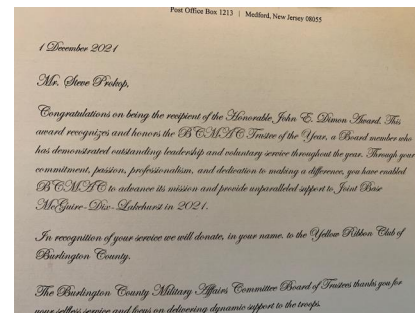 Post Office Box 1213 | Medford, New Jersey 08055
1 December 2021
Mr. Steve Prokop,
Congratulations on being the recipient of the Honorable John E. Dimon Award. This
award recognizes and honors the BCMAC Trustee of the Year, a Board member who
has demonstrated outstanding leadership and voluntary service throughout the year. Through your
commitment, passion, professionalism, and dedication to making a difference, you have enabled
BCMAC to advance its mission and provide unparalleled support to Joint Base
McGuire-Dix-Lakehurst in 2021.
In recognition of your service we will donate, in your name, to the Yellow Ribbon Club of
Burlington County.
The Burlington County Military Affairs Committee Board of Trustees thanks you for
your selfless service and focus on delivering dynamic support to the troops.